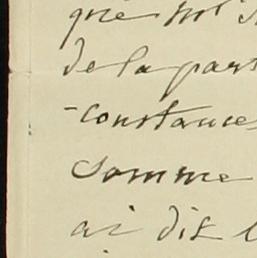 que
de la part
-constance
somme
ai dit